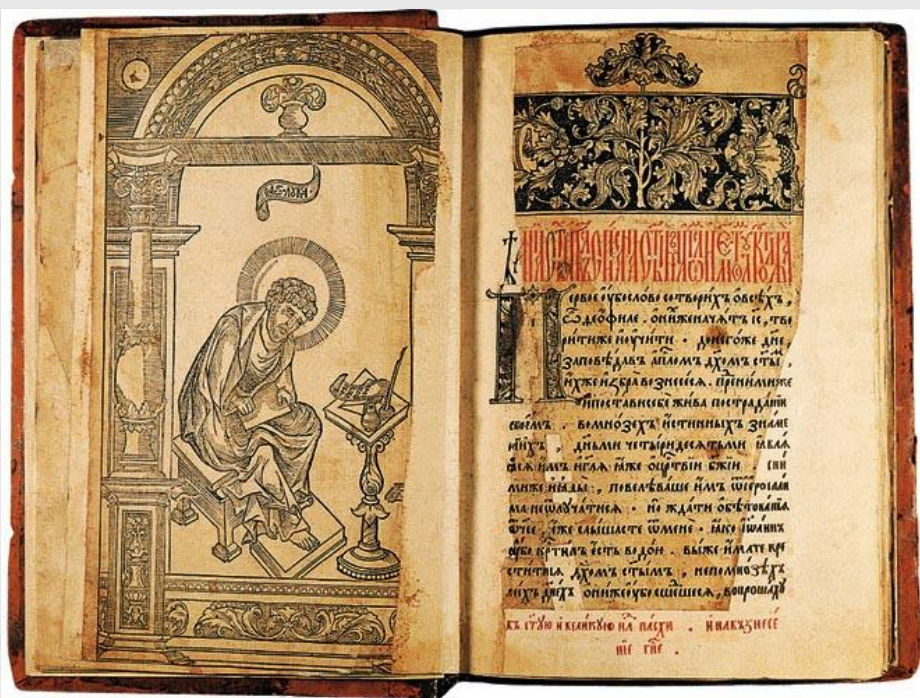 Первоеꙋбослово сотворихъ ѡвсѣхъ,
ѽ деѡфиле . ѡнихженачѧтъ іс҃, тво
ритиже иꙋчити . донегоже дн҃е
заповѣдавъ ап҃лѡмъ дх҃омъ ст҃ы
ихжеизбра вознесесѧ . преднимиже
ипостависебе жива пострадании
своемъ . вомнозѣхъ истинныхъ зна́ме
нїихъ , деньми четыридесѧтьми ꙗвлѧ
ꙗсѧ имъ иг҃лѧ ꙗже оцр҃твїи бж҃їи . сни
миже иꙗды , повелѣваше имъ ѿерослаи
ма неѿлꙋчатисѧ . но ждати обѣтованїѧ
ѿчее , еже слышасте ѿмене . ꙗко іѡаннъ
ꙋбо кр҃тилъ есть водою . выже имате кре
ститисѧ дх҃омъ ст҃ымъ , непомнозѣхъ
сихъ дн҃ехъ ониже ꙋбо сшедшесѧ , вопрошахꙋ
въ ст҃ꙋю и великꙋю нл҃ пасхи . и навъзнесе
нїе гн҃е .